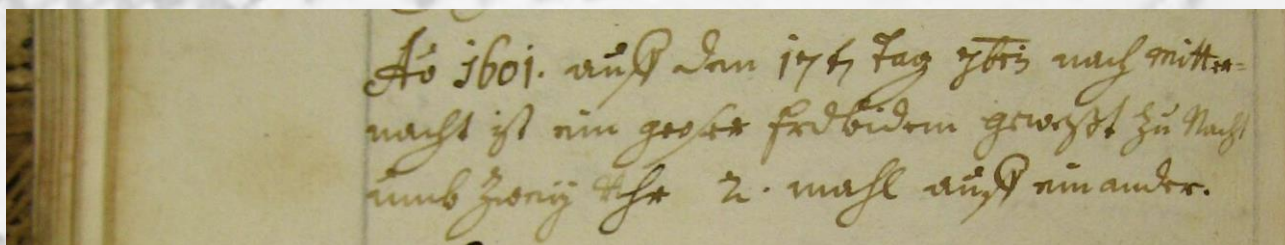 Ao 1601. auff den 17t Tag 7bris nach mitter=
nacht ist ein groser Erdbidem geweßt zu Nacht
umb zweÿ Uhr 2. mahl auff einander.